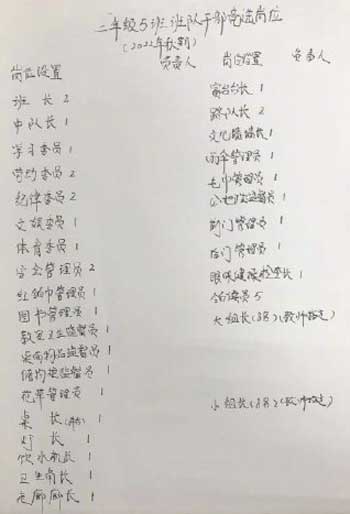 二年级5班班队干部竞选岗位
(2022年秋期)
岗位设置 负责人 岗位设置 负责人
班 长 2
中队长 1
学习委员 1
劳动委员 2
纪律委员 2
文娱委员 1
体育委员 1
安全管理员 2
红领巾管理员 1
图书管理员 1
教室卫生监督员 1
桌面物品监督员 1
1
花草管理员 1
桌 长 1
灯 长 1
饮水机长 1
卫生角长 1
走廊廊长 1
窗台台长 1
路队长 2
文化墙墙长 1
雨伞管理员 1
毛巾管理员 1
公地监督员 1
前门管理员 1
后门管理员 1
眼保健操检查长 1
领读员 5
大组长(8名)(教师指定)
小组长(8名)(教师指定)